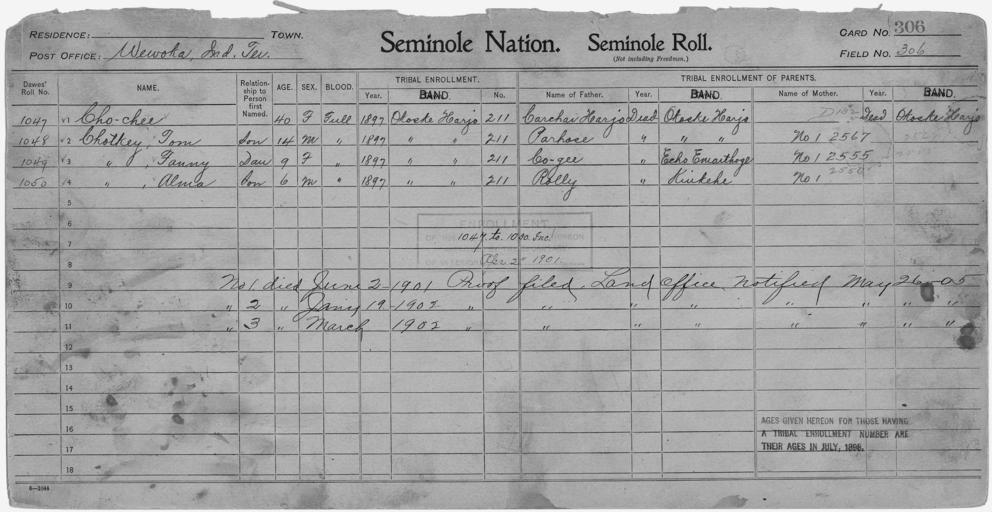 RESIDENCE: TOWN.
POST OFFICE: Wewoka, Ind. Ter.
Seminole Nation. Seminole Roll.
(Not including Freedmen.)
CARD NO. 306
FIELD NO. 306
Dawes' Roll No. NAME. Relationship to Person first Named. AGE. SEX. BLOOD. TRIBAL ENROLLMENT. TRIBAL ENROLLMENT OF PARENTS.
Year. BAND. No. Name of Father. Year. BAND. Name of Mother. Year. BAND.
1047 1 Cho-chee 40 F Full 1897 Otoske Harjo 211 Carchar Harjo Dead Otoske Harjo Dead Otoske Harjo
1048 2 Chotkey, Tom Son 14 M " 1897 " " 211 Parhose " " " No 1 2567
1049 3 " , Fanny Dau 9 F " 1897 " " 211 Co-gee " Echo Emarthoge No 1 2555
1050 4 " , Alma Son 6 M " 1897 " " 211 Rolly " No 1 2556
5
6
ENROLLMENT
7 1047 to 1050 Inc
8 Apr 2 1901
9 No 1 died June 2-1901 Proof filed. Land office Notified May 26-05
10 " 2 " Jany 19-1902 " " " " " " " "
11 " 3 " March 1902 " " " " " " " "
12
13
14
15
16
17
18
AGES GIVEN HEREON FOR THOSE HAVING
A TRIBAL ENROLLMENT NUMBER ARE
THEIR AGES IN JULY, 1898.